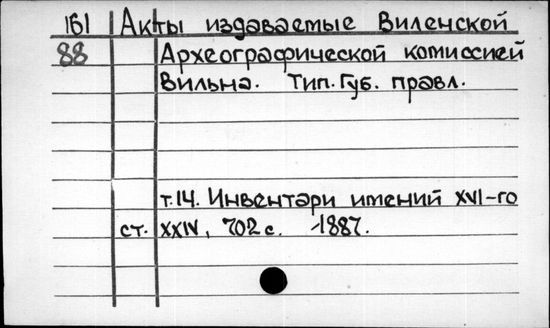 161 Акты издаваемые Виленской
88 Археографической комиссией
Вильна. Тип. Губ. правл.
т.14. Инвентари имений XVI-го
ст. XXIV, 702 с. 1887.